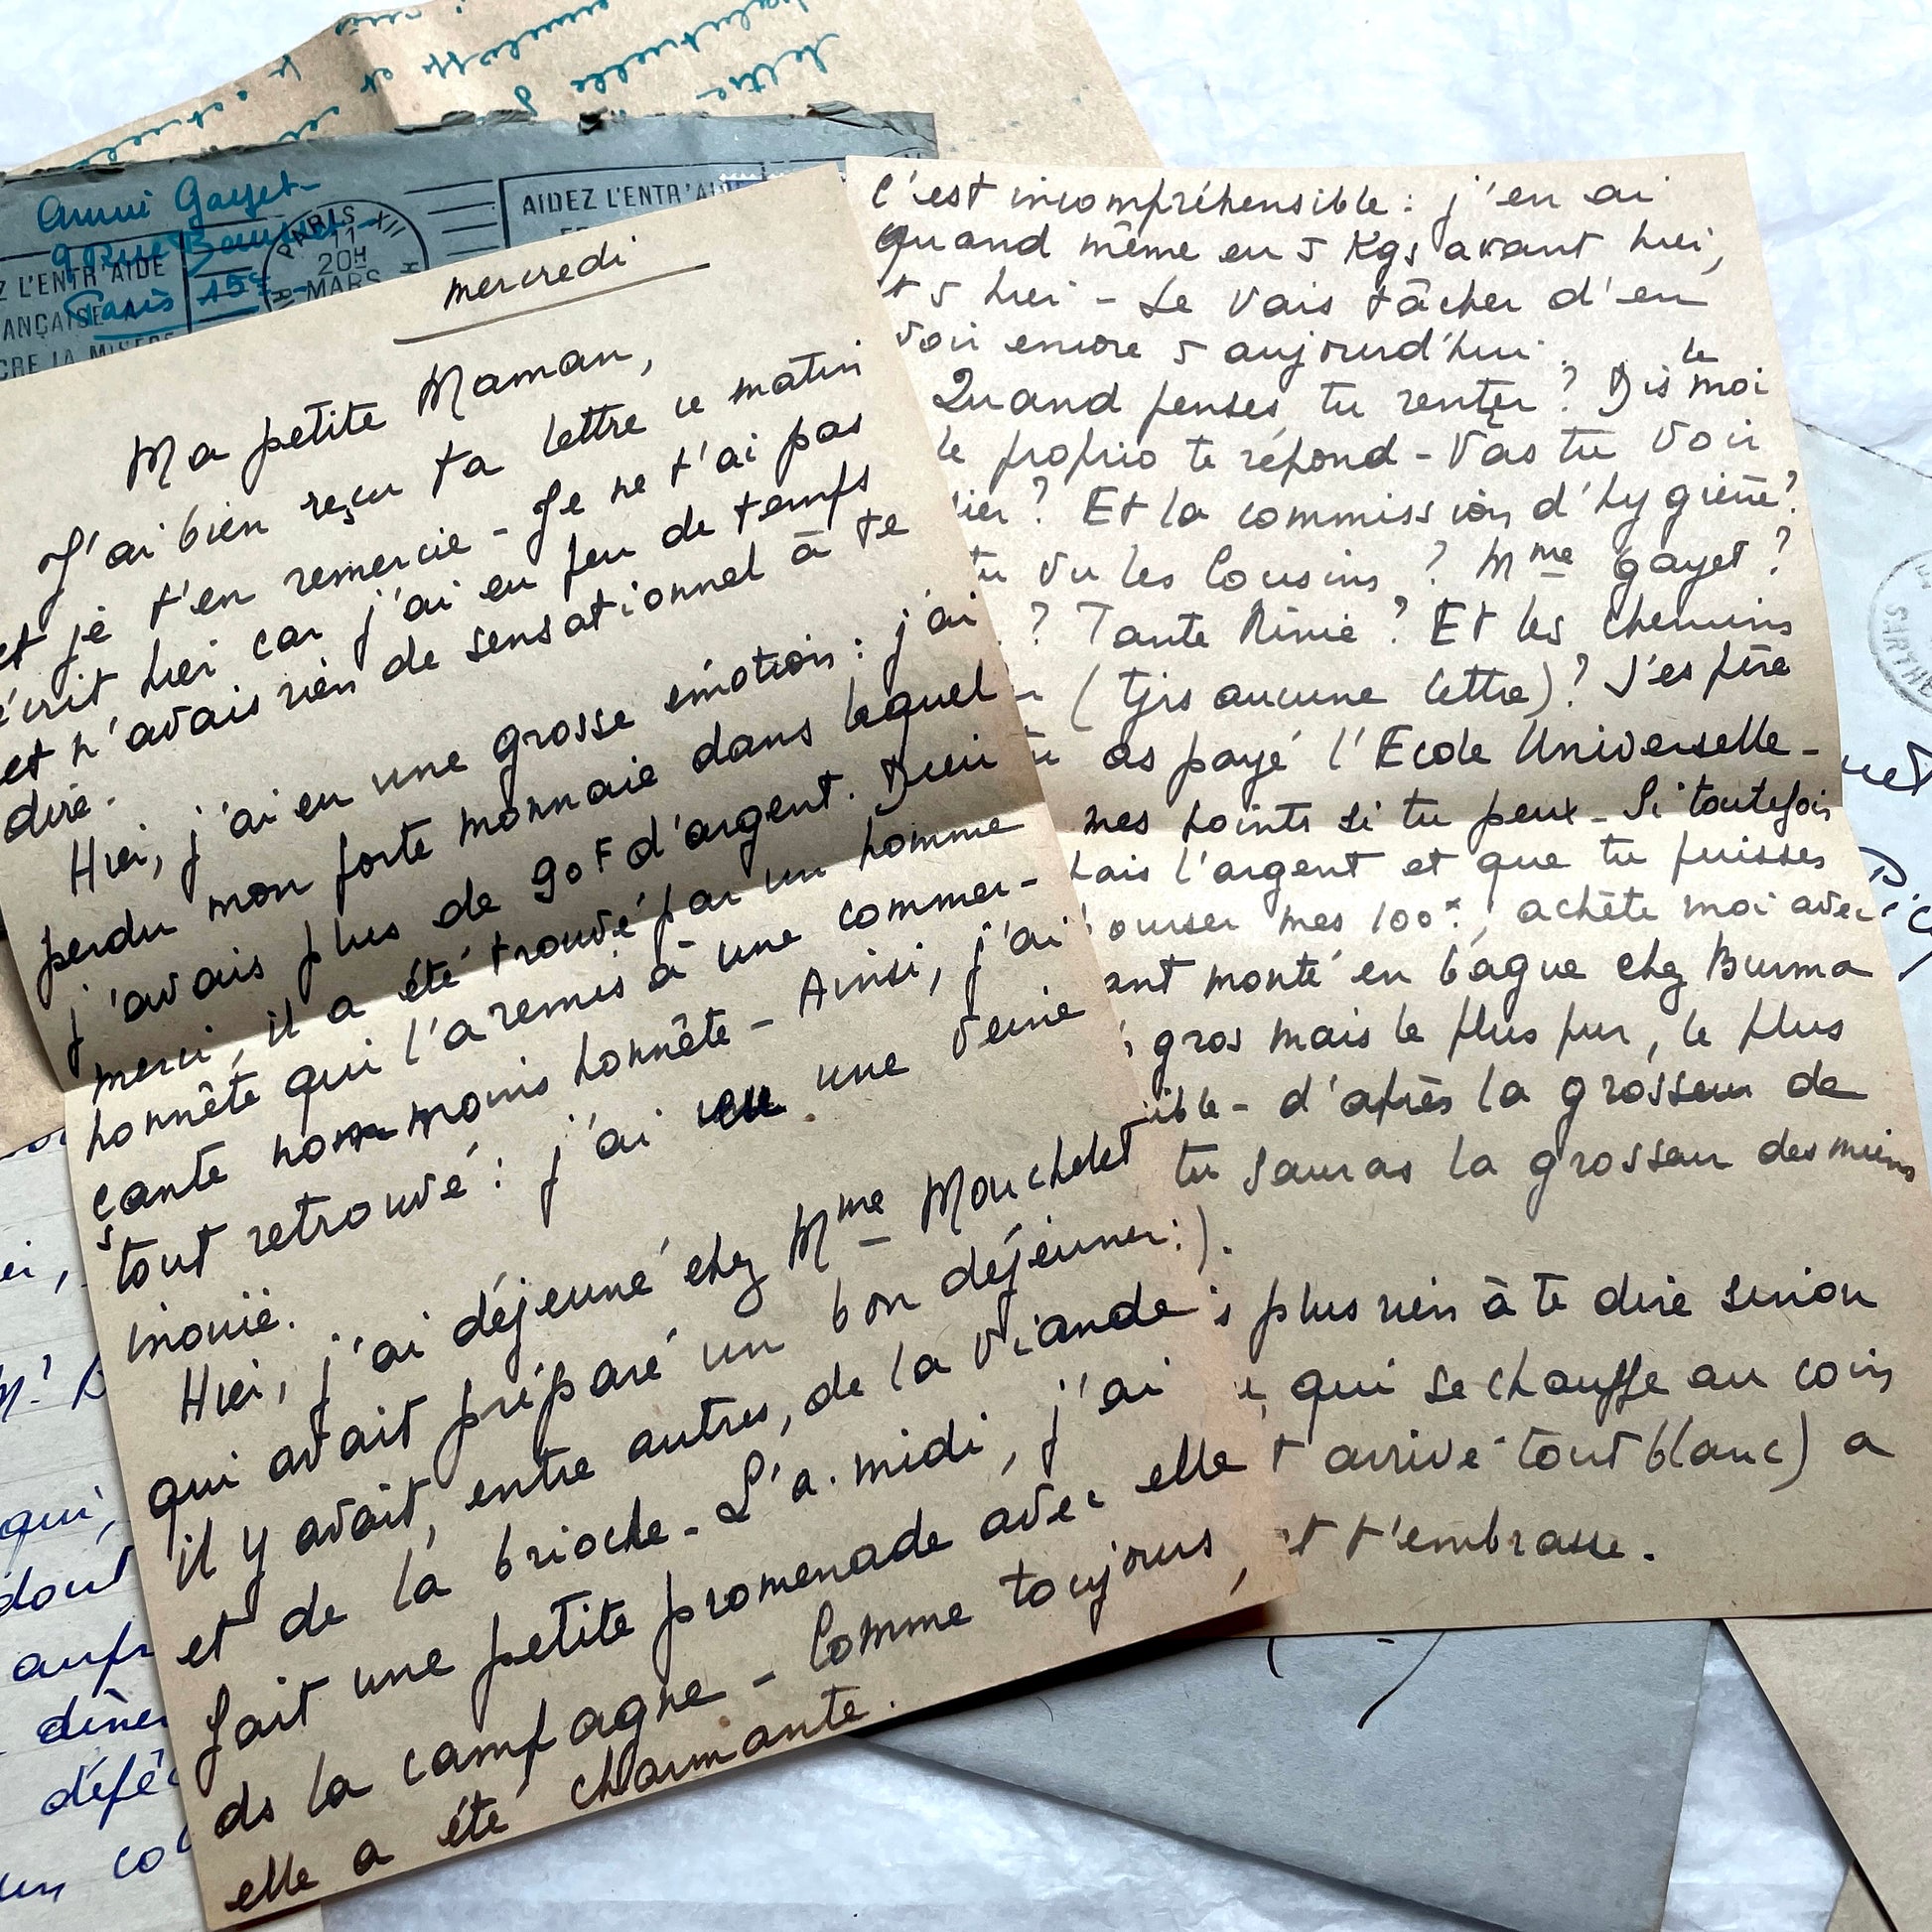 Anni Gayet
9 Rue Bausset
Paris 15e
AIDEZ L'ENTR'AIDE
PARIS XII
11
20H
MARS
Z L'ENTR'AIDE
ANÇAISE
CRE LA MISÈRE
mercredi
Ma petite Maman,
J'ai bien reçu ta lettre ce matin
et je t'en remercie - Je ne t'ai pas
écrit hier car j'ai eu peu de temps
et n'avais rien de sensationnel à te
dire.
Hier, j'ai eu une grosse émotion : j'ai
perdu mon porte monnaie dans lequel
j'avais plus de 90F d'argent. Dieu
merci, il a été trouvé par un homme
honnête qui l'a remis à une commer-
çante non moins honnête - Ainsi, j'ai
tout retrouvé : j'ai eu une veine
inouïe.
Hier, j'ai déjeuné chez Mme Mouchelet
qui avait préparé un bon déjeuner :
il y avait, entre autres, de la viande
et de la brioche - L'a. midi, j'ai
fait une petite promenade avec elle
ds la campagne - Comme toujours,
elle a été charmante.
C'est incompréhensible : j'en ai
quand même eu 5 Kgs avant hier,
et 5 hier - Je vais tâcher d'en
voir encore 5 aujourd'hui.
Quand penses tu rentrer ? Dis le moi
le proprio te répond - Vas tu voir
lier ? Et la commission d'hygiène ?
tu vu les Cousins ? Mme Gayet ?
? Tante Ninie ? Et les chemins
(tjrs aucune lettre) ? J'espère
tu as payé l'Ecole Universelle -
mes points si tu peux - Si toutefois
hais l'argent et que tu puisses
ourser mes 100F, achète moi avec
ant monté en bague chez Burma
gros mais le plus pur, le plus
ible - d'après la grosseur de
tu sauras la grosseur des miens
).
is plus rien à te dire sinon
qui se chauffe au coin
t arrivé tout blanc) a
et t'embrasse.
qui,
dout
dîner